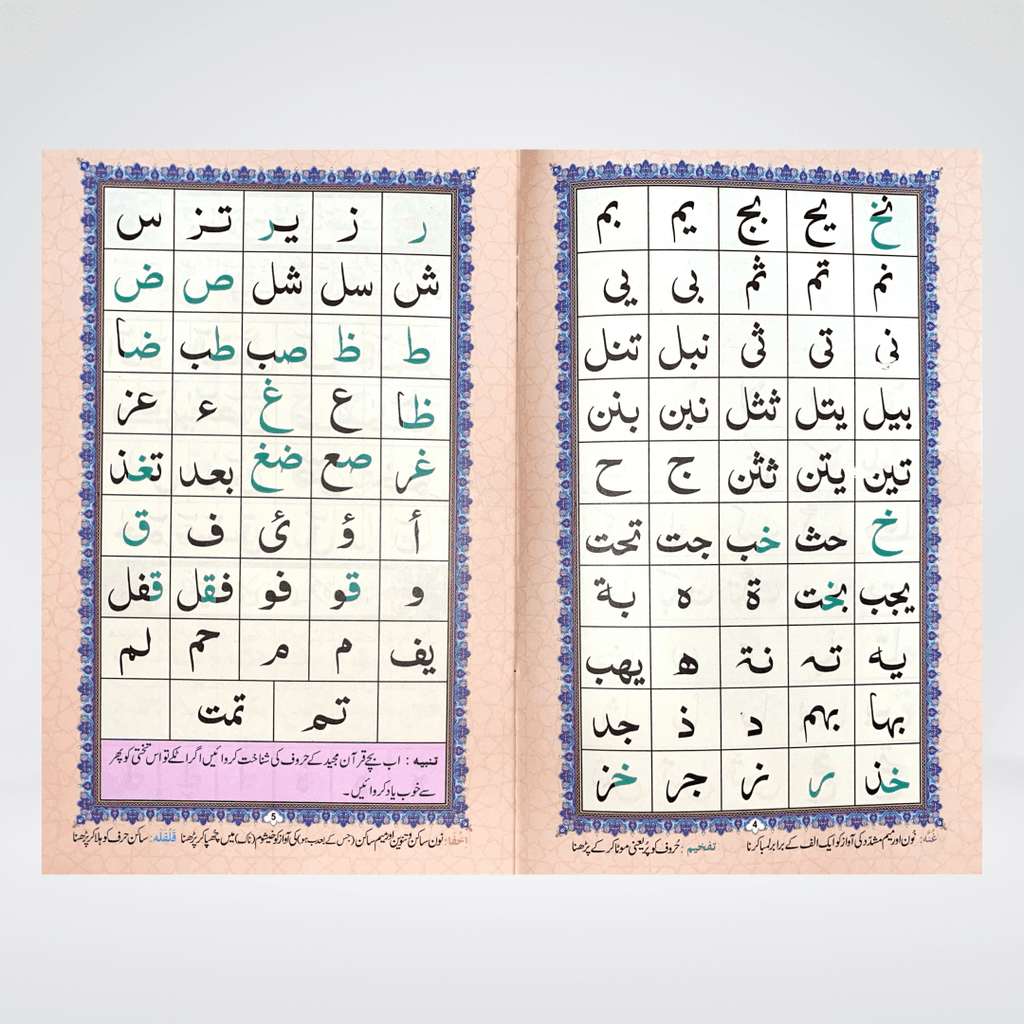 نخ یح بج یم بم
نم تم ثم بی یی
نی تی ثی نبل تنل
بیل یتل ثثل نبن بنن
تین یتن ثثن ج ح
خ حث خب جت تحت
یجب بخت ة ه بة
یه تہ نة ھ یھب
بہا بہم د ذ جد
خذ ر نر جر خز
4
غُنّه: نُون اور میم مشدّد کی آواز کو ایک الف کے برابر لمبا کرنا تفخیم: حُروف کو پُر یعنی موٹا کر کے پڑھنا
ر ز یر تز س
ش سل شل ص ض
ط ظ صب طب ضا
ظا ع غ ء عز
غر صع ضغ بعد تغذ
أ ؤ ئ ف ق
و قو فو فقل قفل
یف م م حم لم
تم تمت
تنبیه : اب بچے قرآن مجید کے حروف کی شناخت کروائیں اگر اٹکے تو اس تختی کو پھر
سے خوب یاد کروائیں۔
5
اِخفا: نون ساکن و تنوین اور میم ساکن (جس کے بعد ب ہو) کی آواز کو خیشوم (ناک) میں چھپا کر پڑھنا قلقله: ساکن حرف کو ہلا کر پڑھنا